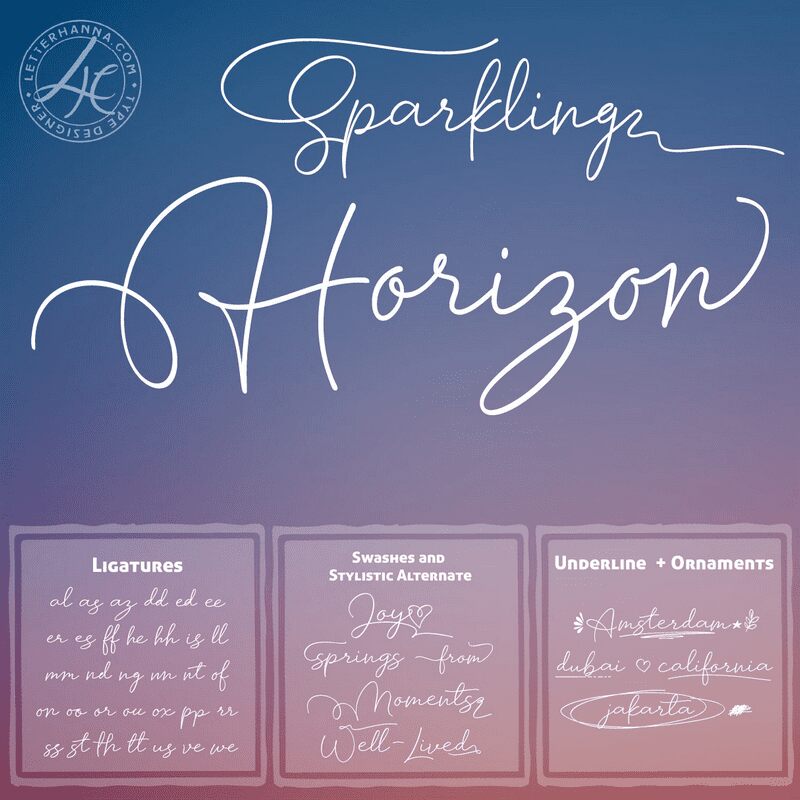 LETTERHANNA.COM
LH
TYPE DESIGNER
Sparkling
Horizon
LIGATURES
al as az dd ed ee
er es ff he hh is ll
mm nd ng nn nt of
on oo or ou ox pp rr
ss st th tt us ve we
SWASHES AND
STYLISTIC ALTERNATE
Joy
springs from
Moments
Well-Lived
UNDERLINE + ORNAMENTS
Amsterdam
dubai ♡ california
jakarta